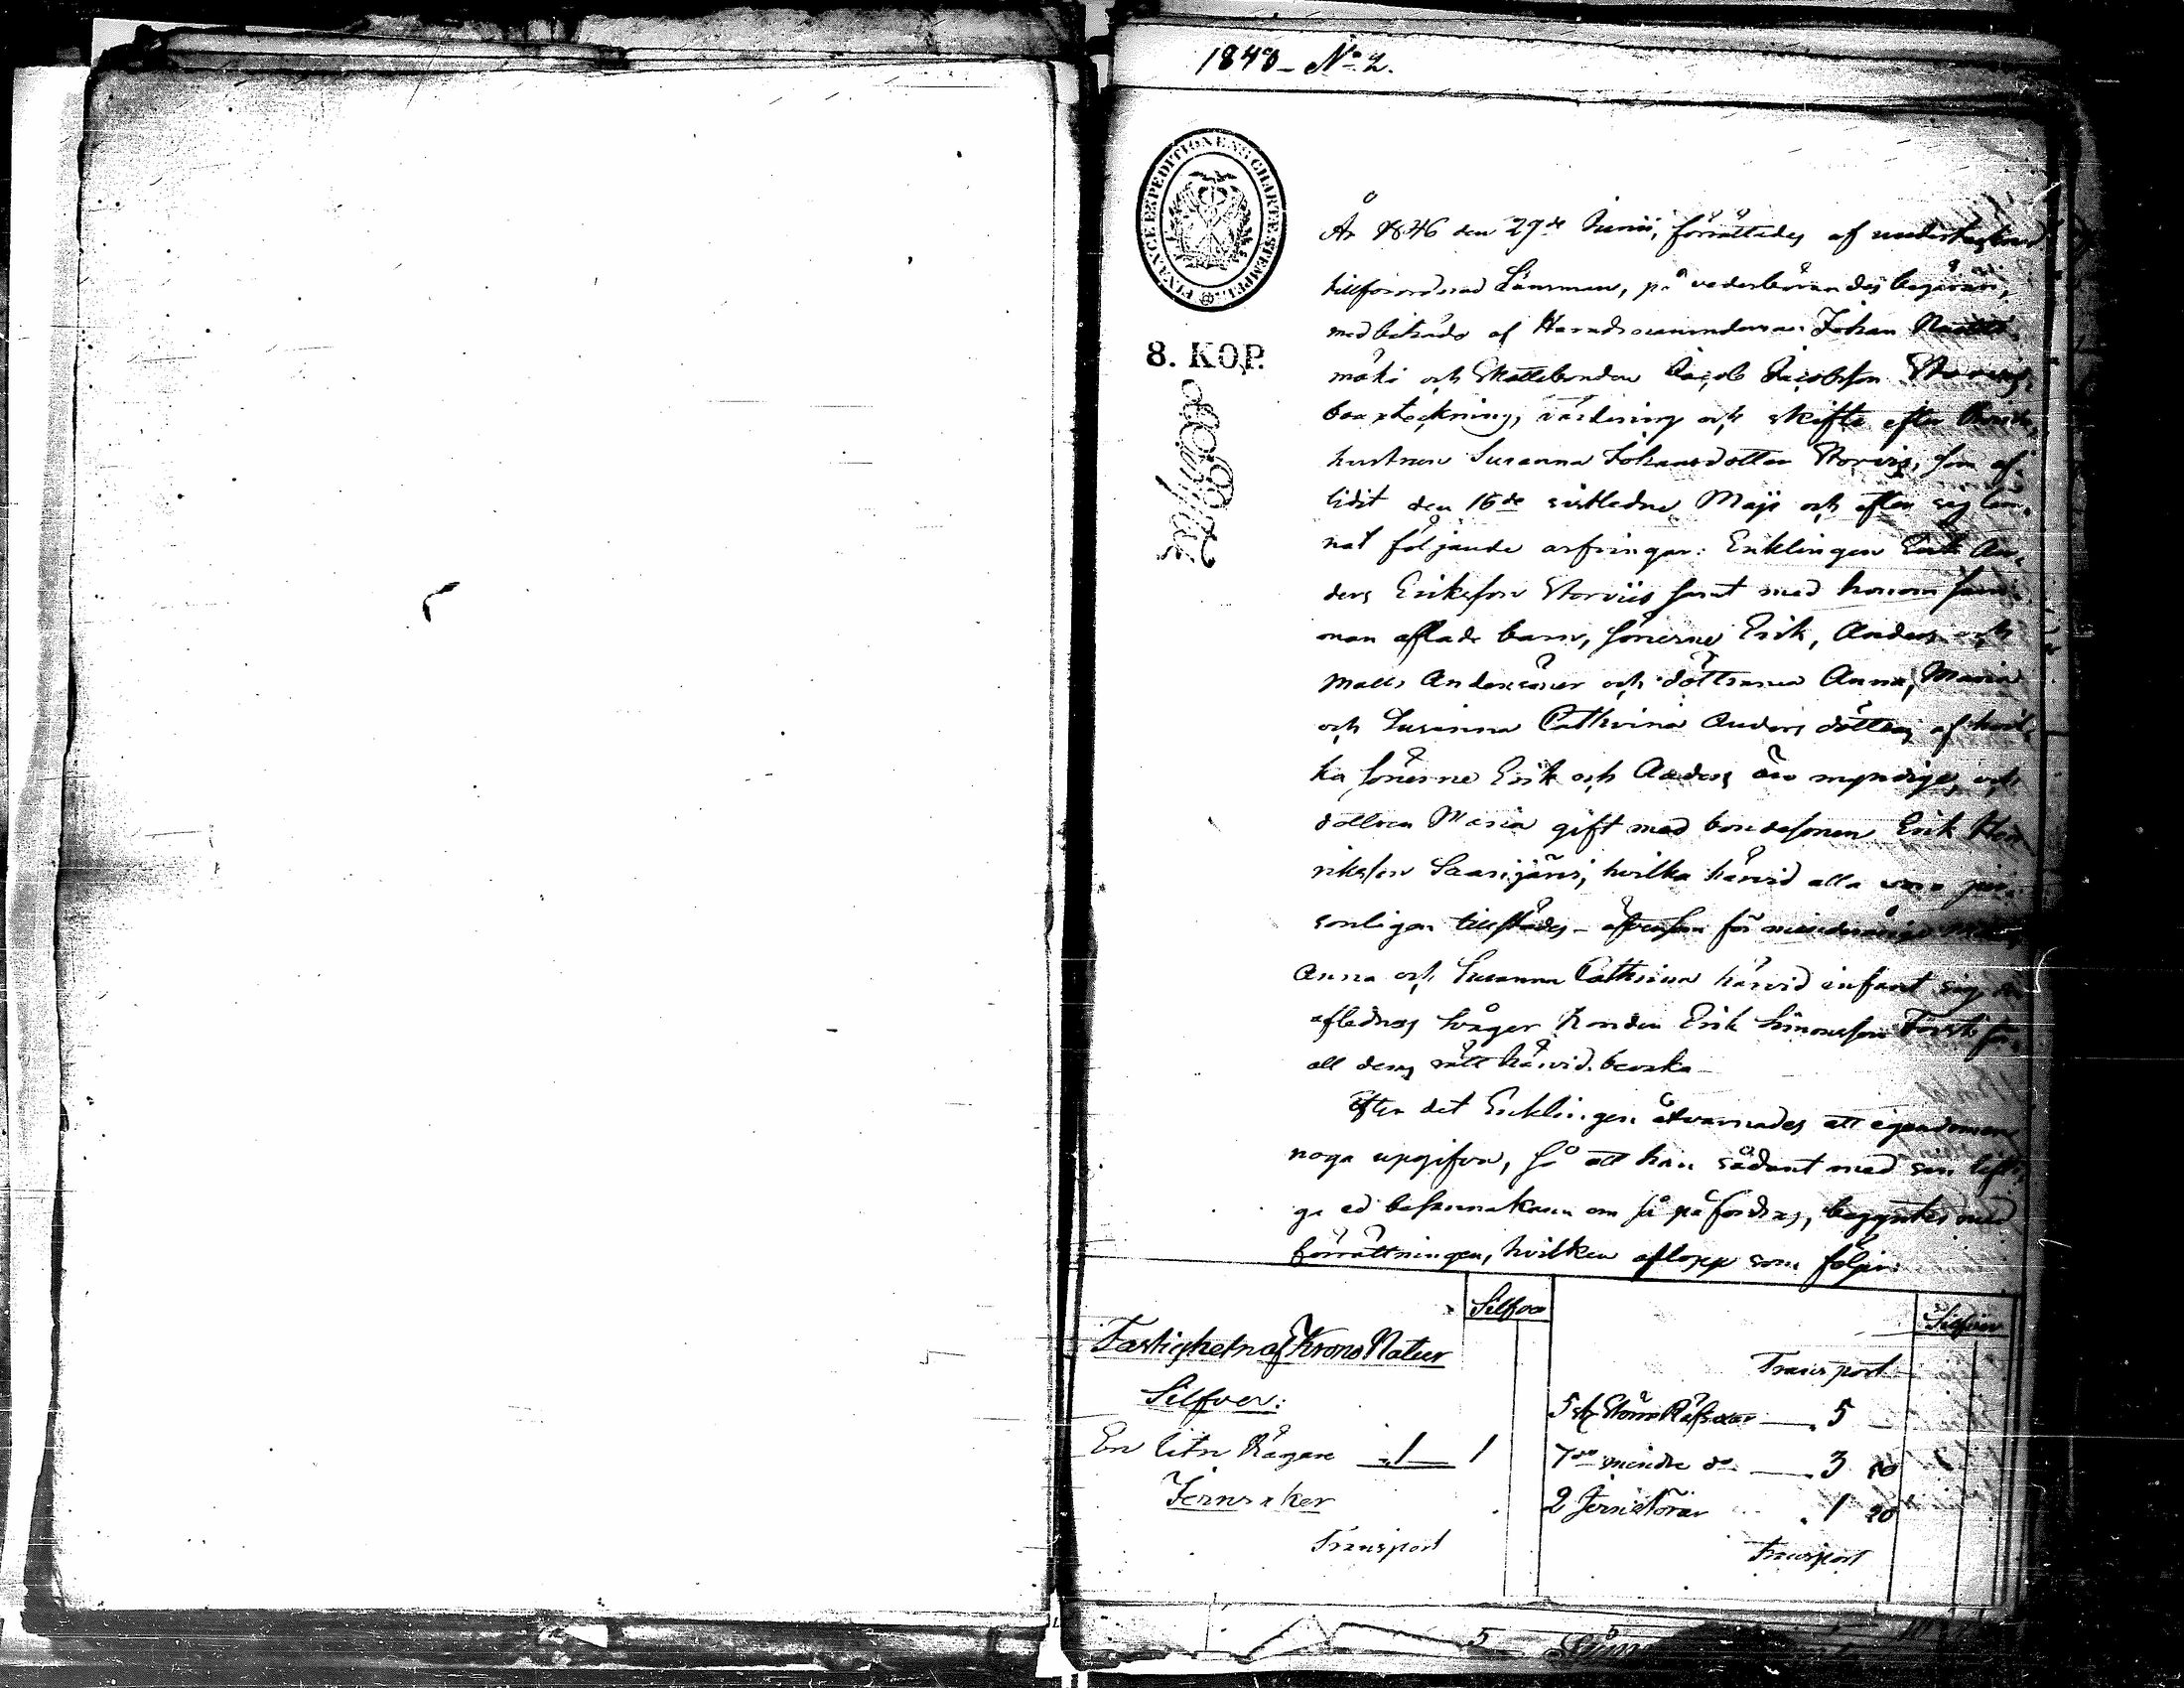 1848 - No 2.
FINANCE EXPEDITIONENS CHARTÆ STEMPEL
8. KOP.
År 1846 den 29de Junii, förrättades af undertecknad
tillförordnad Länsman, på vederbörandes begäran,
med biträde af Häradsnämndeman Johan
mäki och Skattebonden Jacob Jacobsson Storviis,
bouptekning, värdering och skifte efter Bonde
hustrun Susanna Johansdotter Storviis, som af-
lidit den 16de sistledne Maji och efter sig läm-
nat följande arfvingar: Enklingen Erik An-
ders Eriksson Storviis samt med honom sam-
man aflade barn, sönerne Erik, Anders och
Matts Anderssöner och döttrarna Anna, Maria
och Susanna Cathrina Anders döttrar, af hvil-
ka sönerne Erik och Anders äro myndige, och
dottren Maria gift med bondesonen Erik Hen-
riksson Saarijärvi, hvilka härvid alla voro per-
sonligen tillstädes - äfvensom för minderårige Matts,
Anna och Susanna Cathrina härvid infant sig den
aflednas Svåger Bonden Erik Simonsson för
all deras rätt härvid bevaka -
Efter det Enklingen åtvarnades att egendomen
noga uppgifva, så att han sådant med sin lifli-
ga ed besanna kann om så påfordras, begyntes med
förrättningen, hvilken aflopp som följer:
Silfver
Fastighetn af Krono Natur
Silfver:
En liten Bägare 1 1
Jernsaker
Transport
Silfver
Transport
5 st Större Räfsaxar 5 -
7 do mindre do 3 50
2 Jernstörar 1 20
Transport